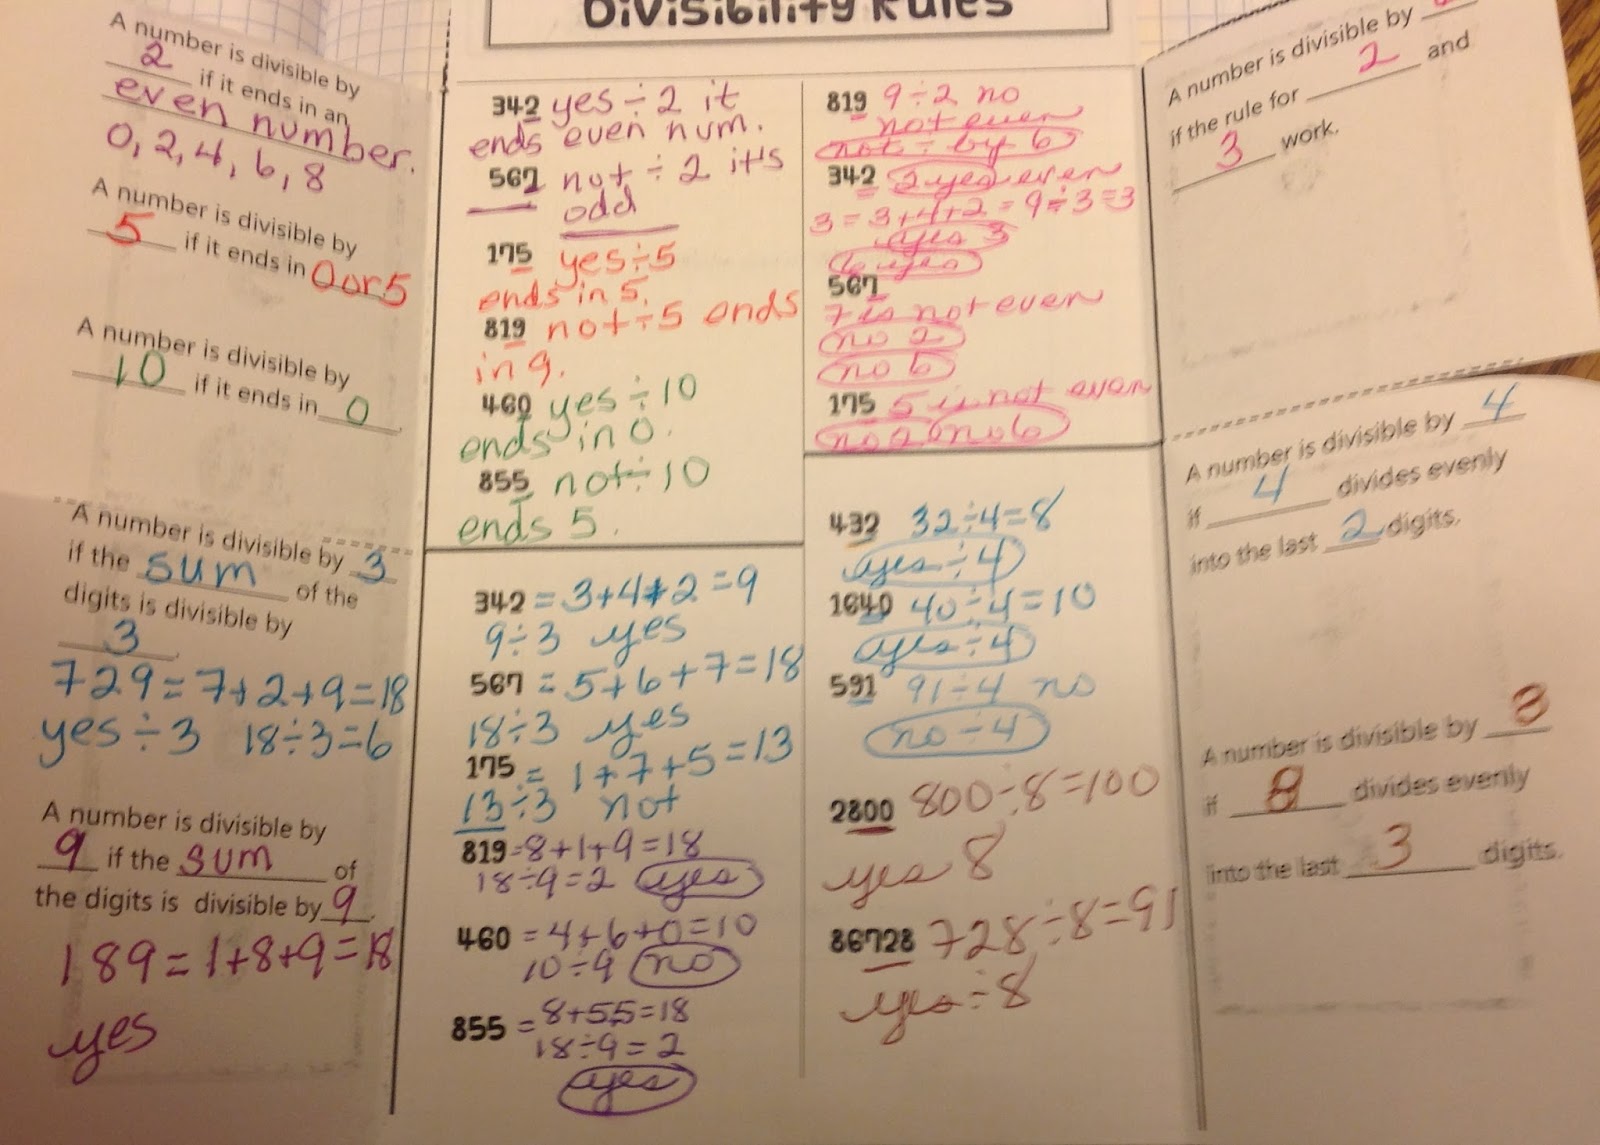 Divisibility Rules
A number is divisible by
2 if it ends in an
even number.
0, 2, 4, 6, 8
A number is divisible by
5 if it ends in 0 or 5
A number is divisible by
10 if it ends in 0
A number is divisible by 3
if the sum of the
digits is divisible by
3
729 = 7+2+9=18
yes ÷ 3 18÷3=6
A number is divisible by
9 if the sum of
the digits is divisible by 9.
189 = 1+8+9=18
yes
342 yes ÷ 2 it
ends even num.
567 not ÷ 2 it's
odd
175 yes ÷ 5
ends in 5.
819 not ÷ 5 ends
in 9.
460 yes ÷ 10
ends in 0.
855 not ÷ 10
ends 5.
342 = 3+4+2=9
9÷3 yes
567 = 5+6+7=18
18÷3 yes
175 = 1+7+5=13
13÷3 not
819=8+1+9=18
18÷9=2 yes
460 =4+6+0=10
10÷9 no
855 = 8+55=18
18÷9=2
yes
819 9÷2 no
not even
not ÷ by 6
342 2 yes even
3 = 3+4+2 = 9÷3=3
yes 3
6 yes
567
7 is not even
no 2
no 6
175 5 is not even
no 2 no 6
432 32÷4=8
yes ÷ 4
1640 40÷4=10
yes ÷ 4
591 91÷4 no
no ÷ 4
2800 800÷8=100
yes 8
86728 728÷8=91
yes ÷ 8
A number is divisible by
if the rule for 2 and
3 work.
A number is divisible by 4
if 4 divides evenly
into the last 2 digits.
A number is divisible by 8
if 8 divides evenly
into the last 3 digits.